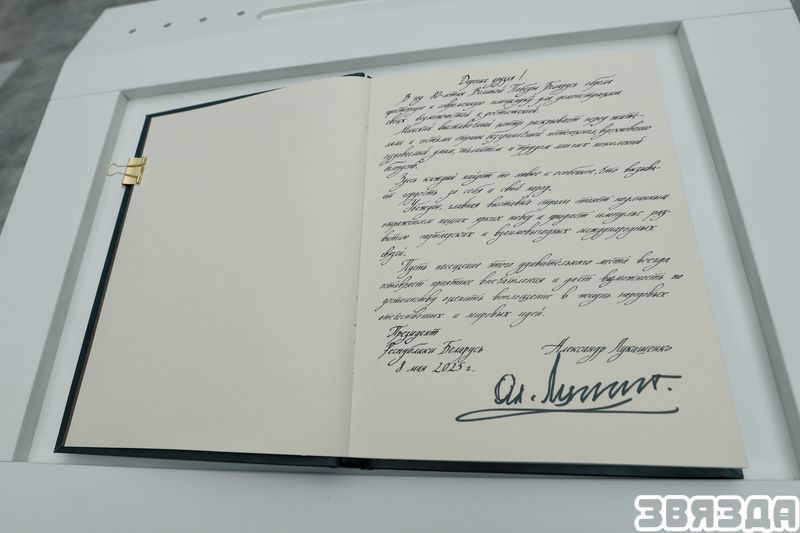 Дорогие друзья!
В год 80-летия Великой Победы Беларусь обрела
просторную и современную площадку для демонстрации
своих возможностей и достижений.
Минский выставочный центр раскрывает перед жите-
лями и гостями страны потенциал, вдохновенно
создаваемый умом, талантом и трудом многих поколений
белорусов.
Здесь каждый найдет то новое и особенное, что вызыва-
ет гордость за себя и свой народ.
Убежден, главная выставка страны станет подлинным
отражением наших ярких побед и придаст импульс раз-
витию партнерских и взаимовыгодных международных
связей.
Пусть посещение этого удивительного места всегда
оставляет приятные впечатления и дает возможность по
достоинству оценить воплощение в жизнь передовых
отечественных и мировых идей.
Президент
Республики Беларусь Александр Лукашенко
8 мая 2025 г.
ЗВЯЗДА